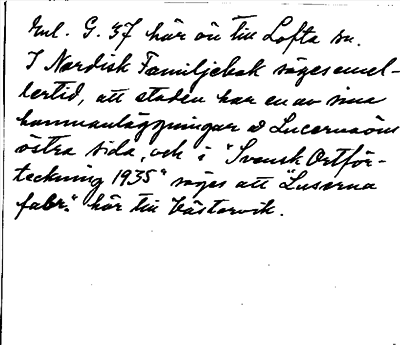 Enl. G. 37 hör ön till Lofta sn.
I Nordisk Familjebok säges emel-
lertid, att staden har en av sina
hamnanläggningar å Lucernaöns
östra sida, och i "Svensk Ortför-
teckning 1935" säges att "Luserna
fabr." hör till Västervik.